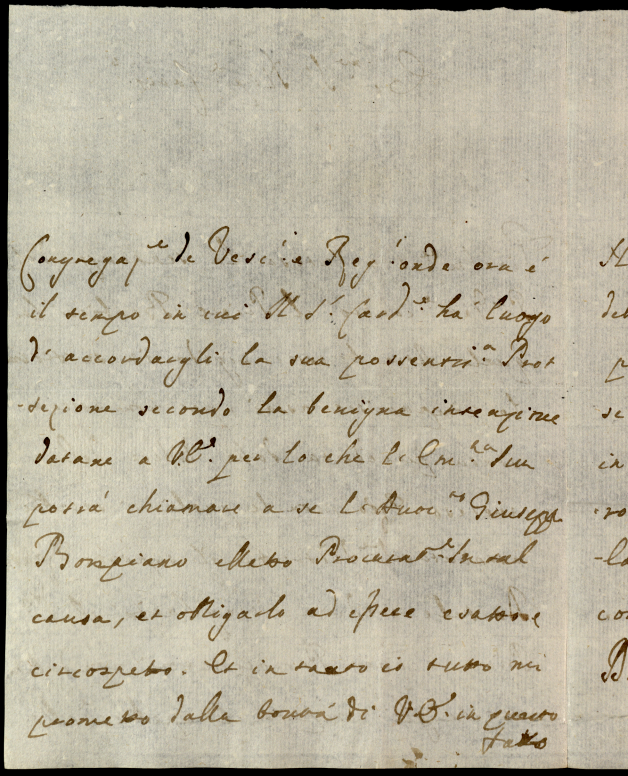 Congregaz.e de Vesc.i e Reg.i onde ora é
il tempo in cui Il S.r Card.e há luogo
d'accordargli la sua possentis.a Prot
-tezione secondo la benigna intenzione
datane a V.E. per lo che l'Em.za Sua
potrá chiamare a se l'Avvo.to Giuseppe
Procurat.e in tal
causa, et obligarlo ad essere esatto e
circospetto. Et in tanto io tutto mi
prometto dalla bontá di V.E. in questo
fatto